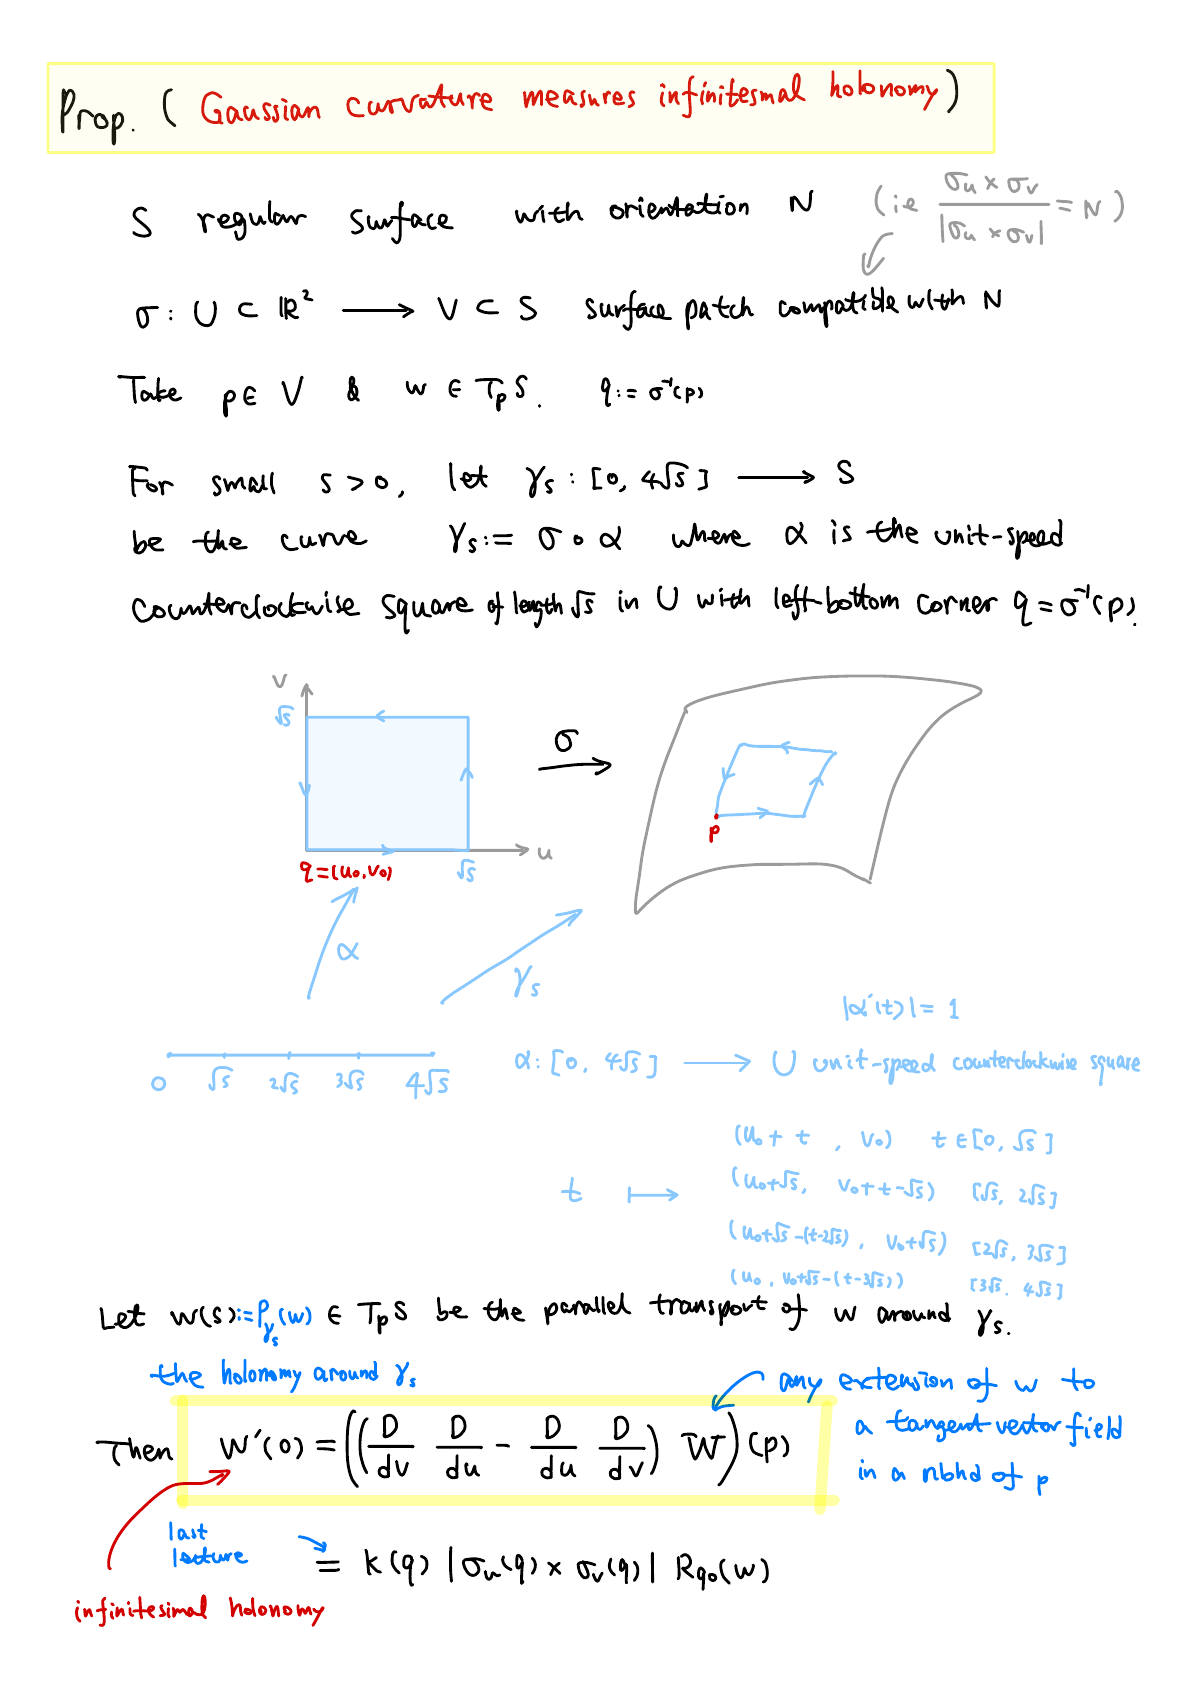 Prop. ( Gaussian curvature measures infinitesmal holonomy )
S regular surface with orientation N (ie σu × σv / |σu × σv| = N )
σ : U ⊂ ℝ² ⟶ V ⊂ S surface patch compatible with N
Take p ∈ V & w ∈ TpS. q := σ⁻¹(p)
For small s > 0, let γs : [0, 4√s ] ⟶ S
be the curve γs := σ ∘ α where α is the unit-speed
counterclockwise square of length √s in U with left-bottom corner q = σ⁻¹(p).
v
√s
σ
p
u
q=(u₀,v₀) √s
α
γs
|α'(t)| = 1
0 √s 2√s 3√s 4√s
α : [0, 4√s ] ⟶ U unit-speed counterclockwise square
(u₀ + t , v₀) t ∈ [0, √s ]
t ⟼ (u₀+√s, v₀+t-√s) [√s, 2√s]
(u₀+√s-(t-2√s), v₀+√s) [2√s, 3√s]
(u₀, v₀+√s-(t-3√s)) [3√s, 4√s]
Let w(s):=Pγs(w) ∈ TpS be the parallel transport of w around γs.
the holonomy around γs
any extension of w to
a tangent vector field
in a nbhd of p
Then w'(0) = ((D/dv D/du - D/du D/dv) W)(p)
last
lecture
= K(q) |σu(q) × σv(q)| R90(w)
infinitesimal holonomy